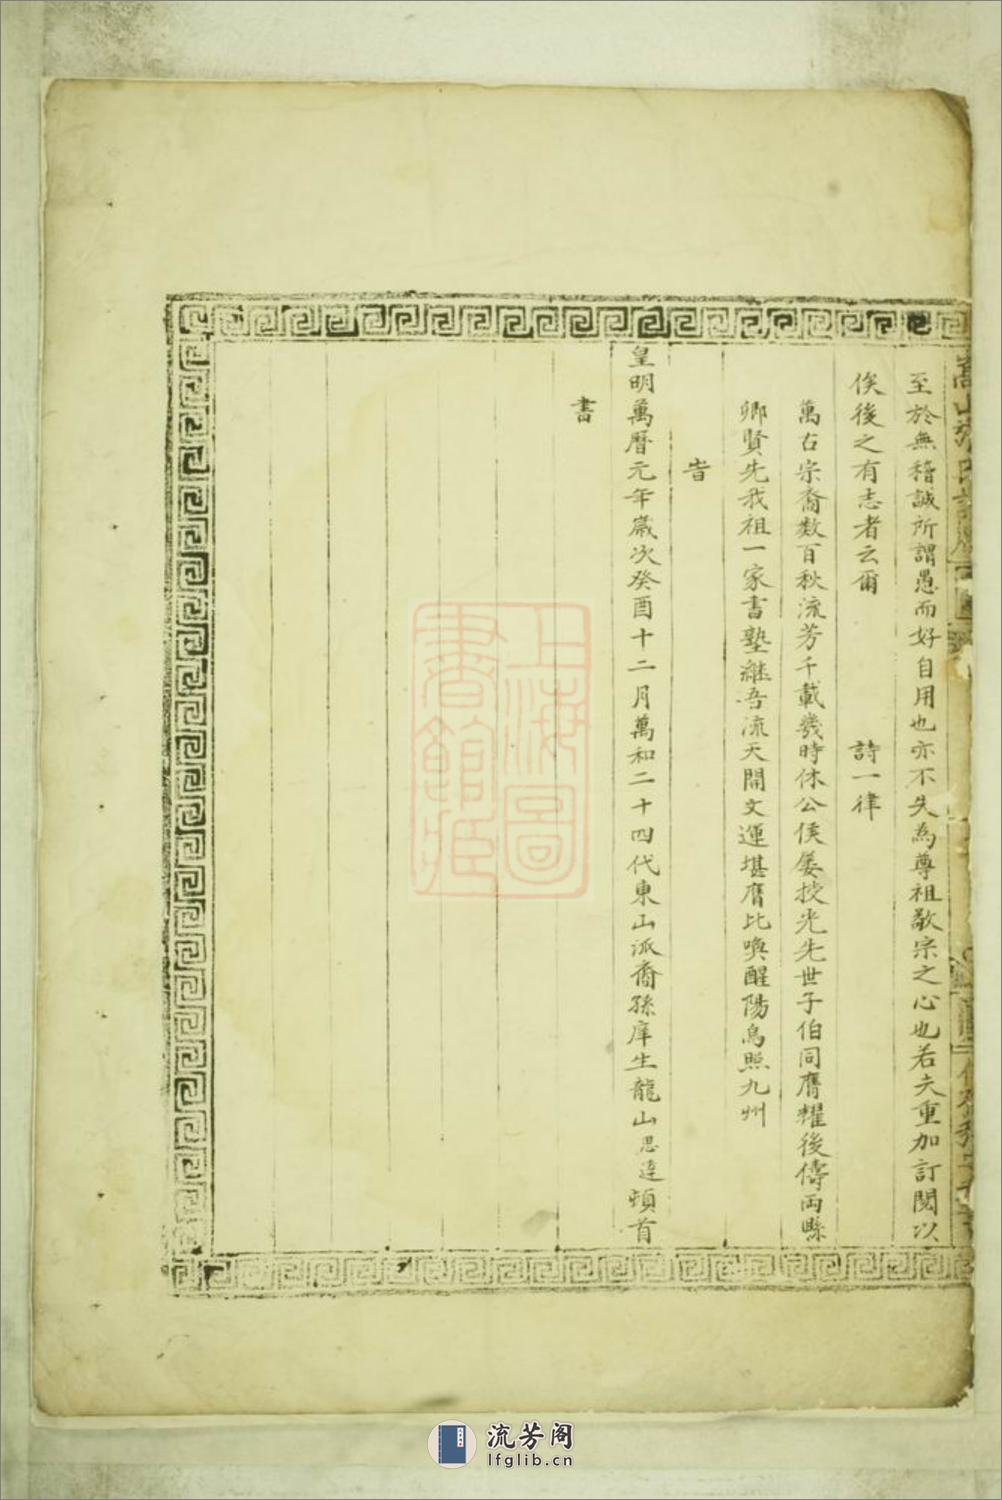 至於無稽誠所謂愚而好自用也亦不失為尊祖敬宗之心也若夫重加訂閱以
俟後之有志者云爾 詩一律
萬古宗裔数百秋流芳千載幾時休公侯屡授光先世子伯同膺耀後儔両縣
鄉賢先我祖一家書塾継吾流天開文運堪膺比喚醒陽烏照九州
旹
皇明萬曆元年歲次癸酉十二月萬和二十四代東山派裔孫庠生龍山思達頓首
書
上海圖書館藏
流芳阁
lfglib.cn